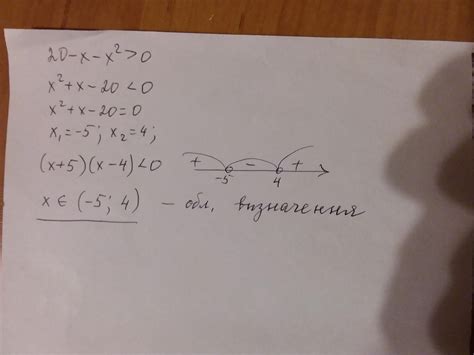 20-x-x²>0
x²+x-20<0
x²+x-20=0
x₁=-5; x₂=4;
(x+5)(x-4)<0 + - +
-5 4
x ∈ (-5; 4) - обл. визначення